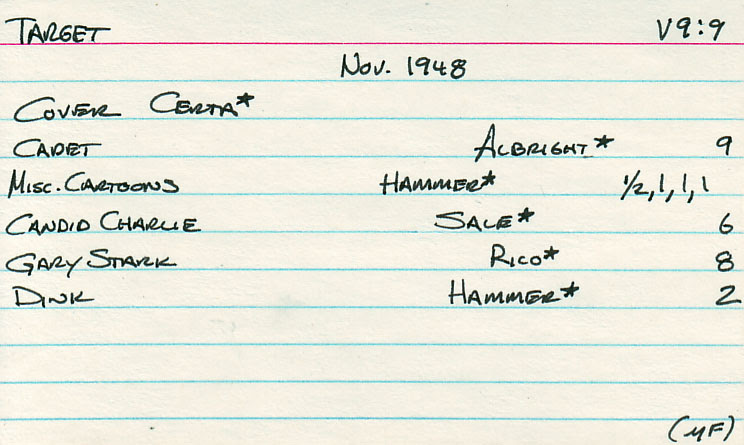 TARGET V9:9
Nov. 1948
COVER CERTA*
CADET ALBRIGHT* 9
MISC. CARTOONS HAMMER* 1/2, 1, 1, 1
CANDID CHARLIE SALE* 6
GARY STARK RICO* 8
DINK HAMMER* 2
(MF)